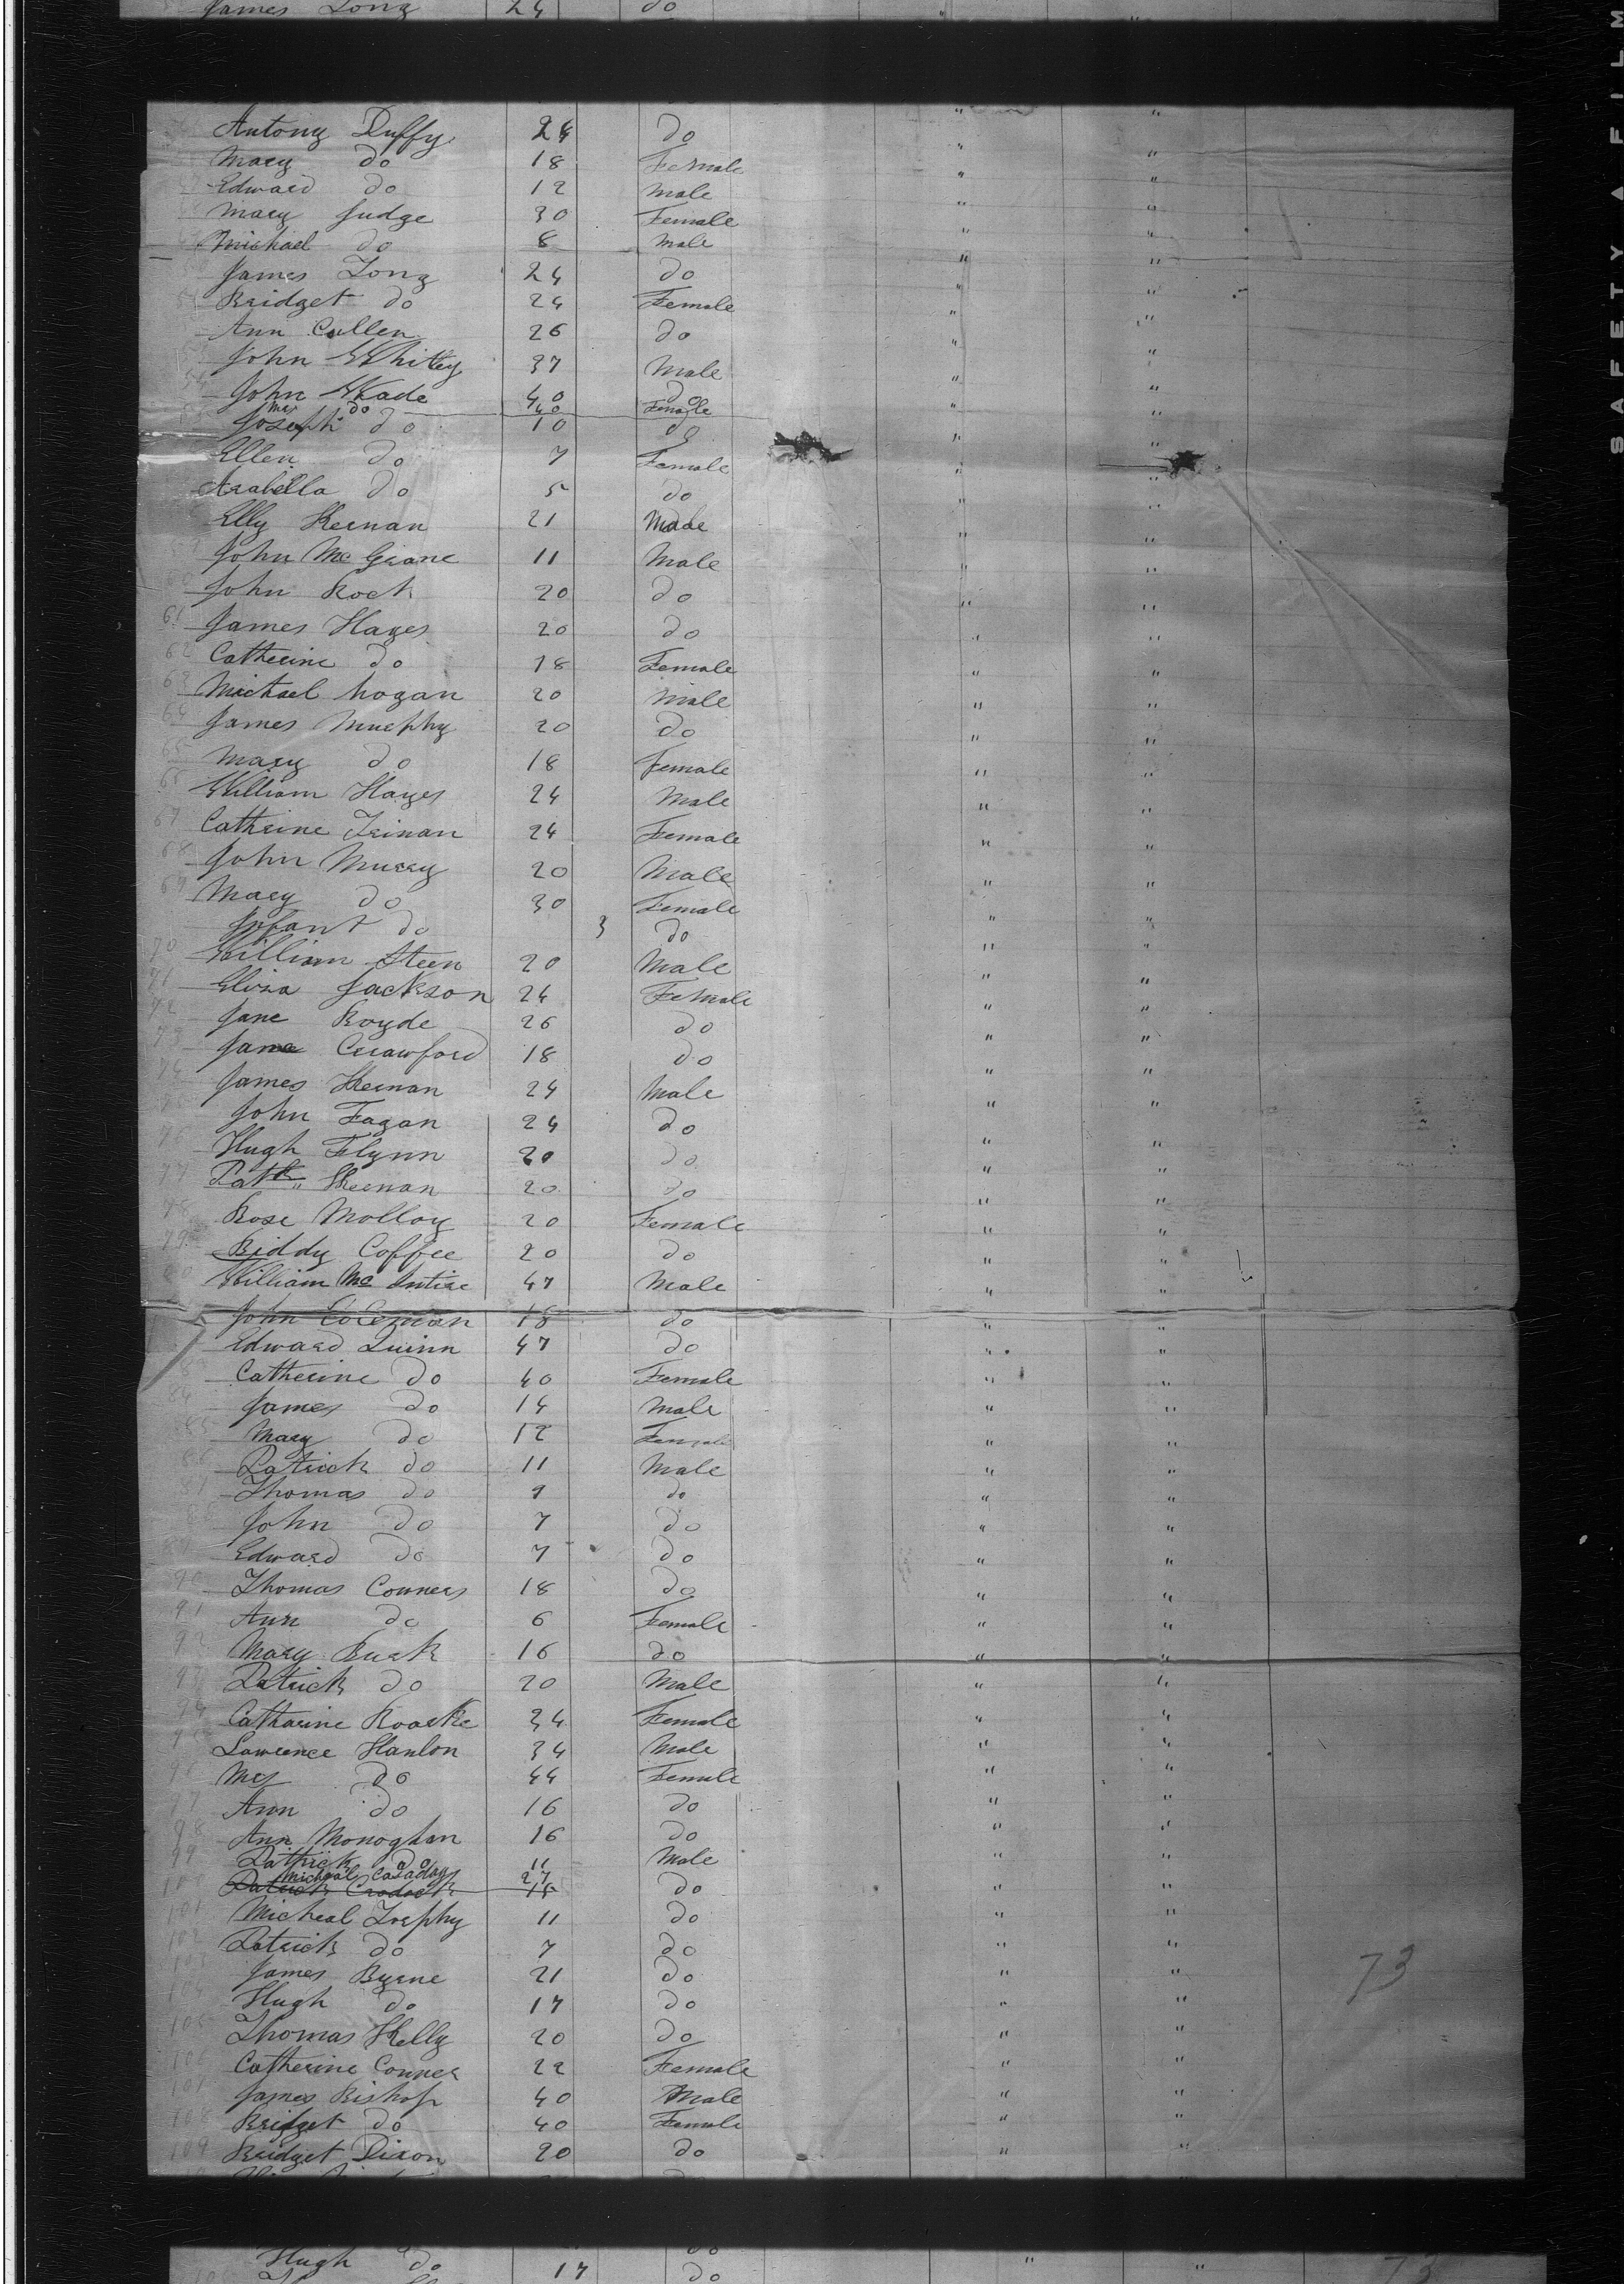 James Long 24 do
Antony Duffy 24 do " "
Mary do 18 Female " "
Edward do 12 Male " "
Mary Judge 30 Female " "
Michael do 8 Male " "
James Long 24 do " "
Bridget do 24 Female " "
Ann Cullen 26 do " "
John Whitty 37 Male " "
John Wade 40 do " "
Mrs do 40 Female
Joseph do 10 do " "
Ellen do 7 Female " "
Arabella do 5 do " "
Elly Keenan 21 " "
John Mc Grane 11 Male " "
John Rock 20 do " "
61 James Hayes 20 do " "
62 Catherine do 18 Female " "
63 Michael hogan 20 Male " "
64 James Murphy 20 do " "
65 Mary do 18 Female " "
66 William Hayes 24 Male " "
67 Catherine Trinan 24 Female " "
68 John Murry 20 Male " "
69 Mary do 30 Female " "
Infant do 3 do " "
70 William Steen 20 Male " "
71 Eliza Jackson 24 Female " "
72 Jane Boyde 26 do " "
73 Jane Crawford 18 do " "
74 James Keenan 24 Male " "
75 John Fagan 24 do " "
76 Hugh Flynn 20 do " "
77 Patk " Keenan 20 do " "
78 Rose Molloy 20 Female " "
79 Biddy Coffee 20 do " "
80 William Mc Intire 47 Male " "
John Coleman 18 do " "
Edward Quinn 47 do " "
83 Catherine do 40 Female " "
84 James do 14 Male " "
85 Mary do 12 Female " "
86 Patrick do 11 Male " "
87 Thomas do 9 do " "
88 John do 7 do " "
89 Edward do 7 do " "
90 Thomas Conners 18 do " "
91 Ann do 6 Female " "
92 Mary Burk 16 do " "
93 Patrick do 20 Male " "
94 Catharine Roarke 34 Female " "
95 Lawrence Hanlon 34 Male " "
96 Mrs do 44 Female " "
97 Ann do 16 do " "
98 Ann Monoghan 16 do " "
99 Pathrick do 11 Male " "
Micheal Casaday 27
100 Patrick Cradock 15 do " "
101 Micheal Trephy 11 do " "
102 Patrick do 7 do " "
103 James Byrne 21 do " "
104 Hugh do 17 do " "
105 Thomas Kelly 20 do " "
106 Catherine Conner 22 Female " "
107 James Bishop 40 Male " "
108 Bridget do 40 Female " "
109 Bridget Dixon 20 do " "
73
Hugh do 17 do " "
73
SAFETY A FILM